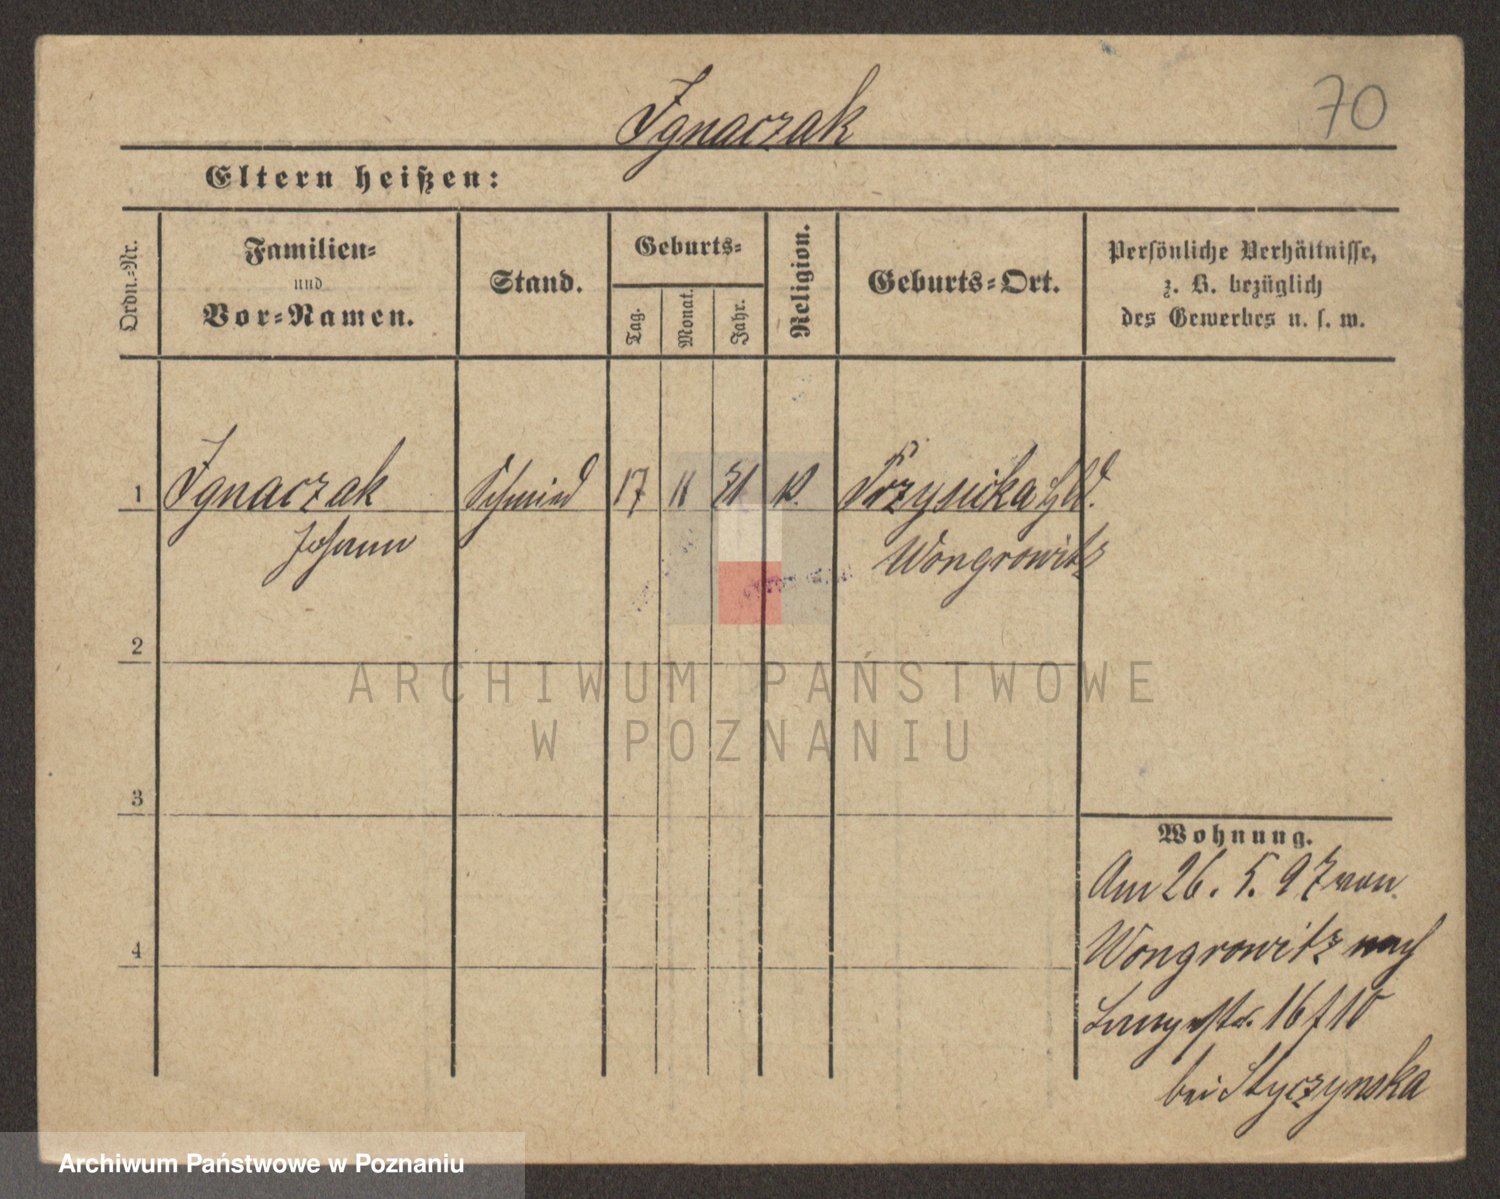 70
Ignaczak
Eltern heißen:
Ordn.-Nr.
Familien-
und
Vor-Namen.
Stand.
Geburts-
Tag.
Monat.
Jahr.
Religion.
Geburts-Ort.
Persönliche Verhältnisse,
z. B. bezüglich
des Gewerbes u. s. w.
1 Ignaczak Schmied 17 11 71 k.
Johann
Wongrowitz
2
ARCHIWUM PAŃSTWOWE
W POZNANIU
3
Wohnung.
Am 26. 5. 97 von
4
Wongrowitz nach
Langestr. 16 f 10
bei Styczynska
Archiwum Państwowe w Poznaniu